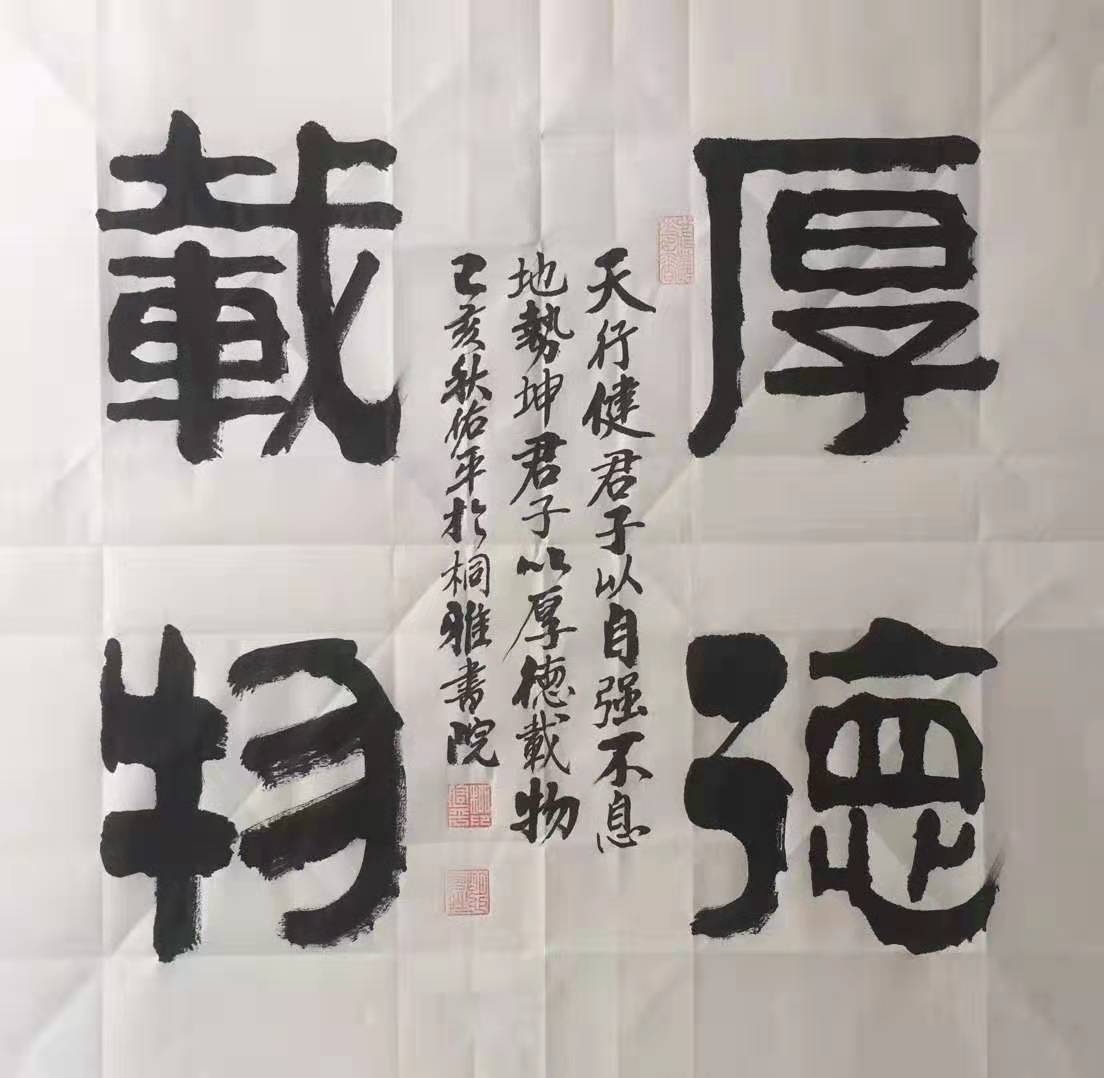 厚德
載物
天行健君子以自强不息
地勢坤君子以厚德載物
己亥秋佑平於桐雅書院